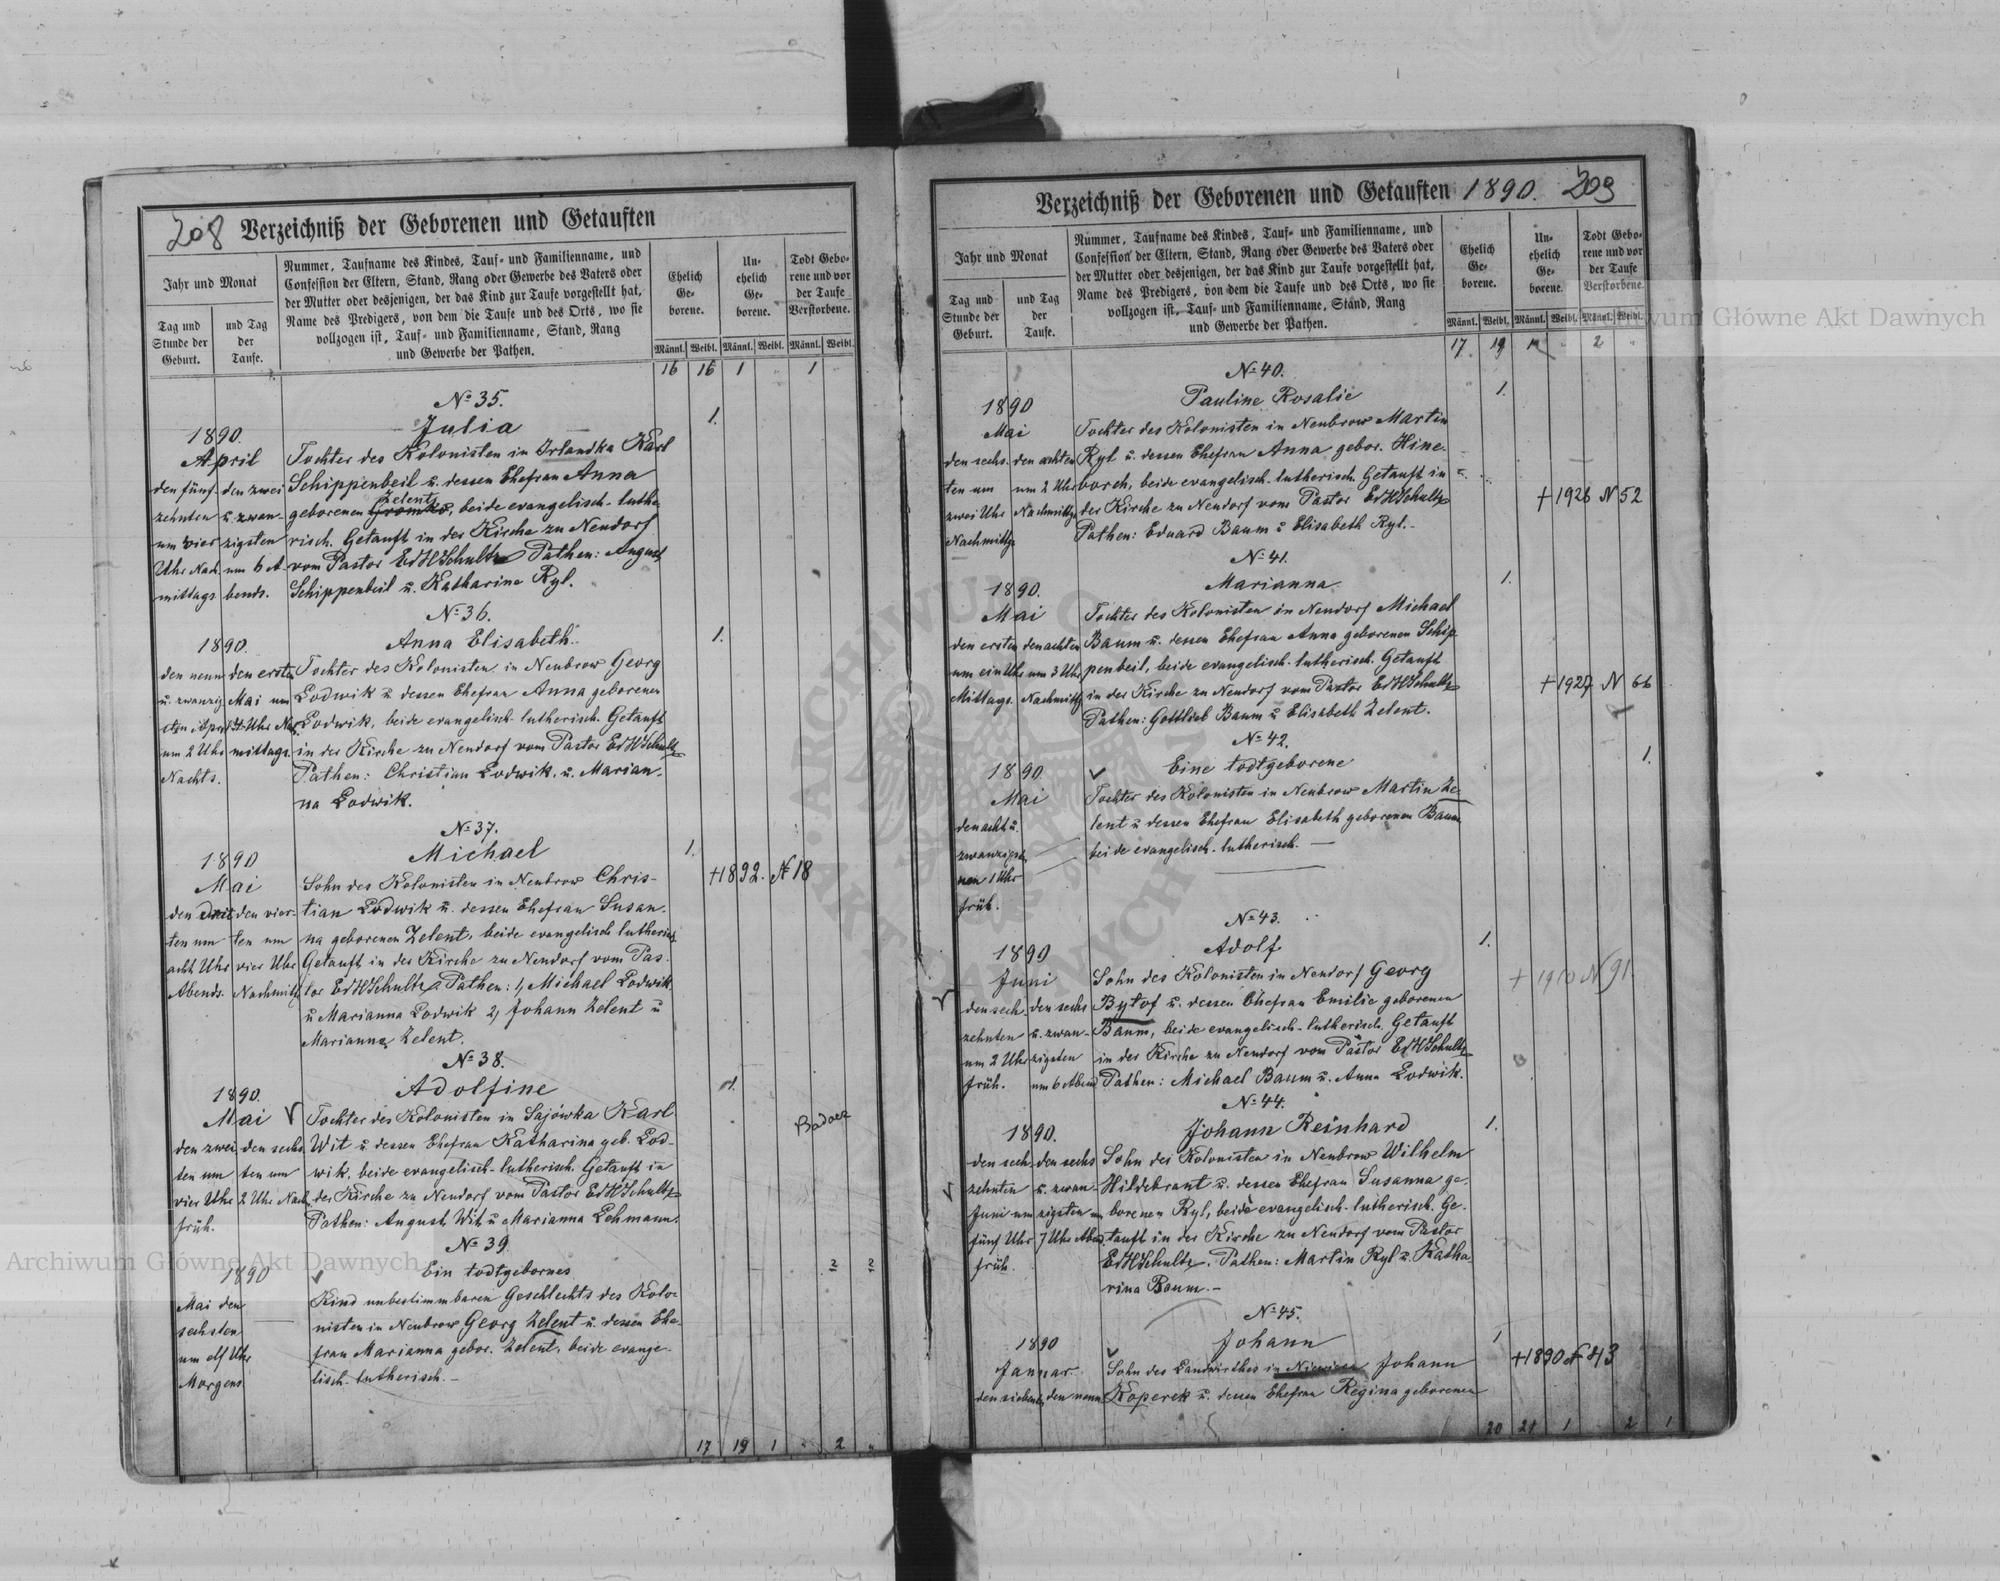 208 Verzeichniß der Geborenen und Getauften
Jahr und Monat
Tag und
Stunde der
Geburt.
und Tag
der
Taufe.
Nummer, Taufname des Kindes, Tauf- und Familienname, und
Confession der Eltern, Stand, Rang oder Gewerbe des Vaters oder
der Mutter oder desjenigen, der das Kind zur Taufe vorgestellt hat,
Name des Predigers, von dem die Taufe und des Orts, wo sie
vollzogen ist, Tauf- und Familienname, Stand, Rang
und Gewerbe der Pathen.
Ehelich
Ge-
borene.
Un-
ehelich
Ge-
borene.
Todt Gebo-
rene und vor
der Taufe
Verstorbene.
Männl. Weibl. Männl. Weibl. Männl. Weibl.
16 16 1 " 1
№ 35.
Julia 1.
1890.
April
den fünf-
zehnten
um vier
Uhr Nach-
mittags
den zwei
u. zwan-
zigsten
um 6 A-
bends.
Tochter des Kolonisten in Irlandka Karl
Schippenbeil u. dessen Ehefrau Anna
Zelent
geborenen Gromko, beide evangelisch-luthe-
risch. Getauft in der Kirche zu Neudorf
vom Pastor EdHSchultz Pathen: August
Schippenbeil u. Katharine Ryl.
№ 36.
Anna Elisabeth. 1.
1890.
den neun
u. zwanzig
sten April
um 2 Uhr
Nachts.
den ersten
Mai um
Uhr Nach
mittags.
Tochter des Kolonisten in Neubrow Georg
Lodwik u dessen Ehefrau Anna geborenen
Lodwik, beide evangelisch-lutherisch. Getauft
in der Kirche zu Neudorf vom Pastor EdHSchultz
Pathen: Christian Lodwik u. Marian-
na Lodwik.
№ 37.
Michael 1.
+1892. № 18
1890
Mai
den drit
ten um
acht Uhr
Abends.
den vier-
ten um
vier Uhr
Nachmittg
Sohn des Kolonisten in Neubrow Chris-
tian Lodwik u. dessen Ehefrau Susan-
na geborenen Zelent, beide evangelisch lutherisch
Getauft in der Kirche zu Neudorf vom Pas-
tor EdHSchultz Pathen: 1, Michael Lodwik
u Marianna Lodwik 2, Johann Zelent u
Marianna Zelent.
№ 38.
Adolfine 1.
1890.
Mai
den zwei
ten um
vier Uhr
früh.
den sechs
ten um
2 Uhr Nach
Tochter des Kolonisten in Sajówka Karl
Wit u dessen Ehefrau Katharina geb. Lod-
wik, beide evangelisch-lutherisch. Getauft in
der Kirche zu Neudorf vom Pastor EdHSchultz
Pathen: August Wit u Marianna Lehmann.
№ 39.
Ein todtgebornes 2 2
1890
Mai den
sechsten
um elf Uhr
Morgens
Kind unbestimmbaren Geschlechts des Kolo-
nisten in Neubrow Georg Zelent u. dessen Ehe-
frau Marianna gebor. Zelent, beide evange-
lisch-lutherisch.-
17 19 1 " 2 "
Verzeichniß der Geborenen und Getauften 1890. 209
Jahr und Monat
Tag und
Stunde der
Geburt.
und Tag
der
Taufe.
Nummer, Taufname des Kindes, Tauf- und Familienname, und
Confession der Eltern, Stand, Rang oder Gewerbe des Vaters oder
der Mutter oder desjenigen, der das Kind zur Taufe vorgestellt hat,
Name des Predigers, von dem die Taufe und des Orts, wo sie
vollzogen ist, Tauf- und Familienname, Stand, Rang
und Gewerbe der Pathen.
Ehelich
Ge-
borene.
Un-
ehelich
Ge-
borene.
Todt Gebo-
rene und vor
der Taufe
Verstorbene.
Männl. Weibl. Männl. Weibl. Männl. Weibl.
17 19 1 " 2 "
№ 40.
Pauline Rosalie 1.
1890
Mai
den sechs-
ten um
zwei Uhr
Nachmittg
den achten
um 2 Uhr
Nachmittg
Tochter des Kolonisten in Neubrow Martin
Ryl u. dessen Ehefrau Anna gebor. Hine-
borch, beide evangelisch-lutherisch. Getauft in
der Kirche zu Neudorf vom Pastor EdHSchultz
Pathen: Eduard Baum u Elisabeth Ryl.-
+1926 № 52
№ 41.
Marianna 1.
1890.
Mai
den ersten
um ein Uhr
Mittags.
den achten
um 3 Uhr
Nachmittg
Tochter des Kolonisten in Neudorf Michael
Baum u. dessen Ehefrau Anna geborenen Schip-
penbeil, beide evangelisch-lutherisch. Getauft
in der Kirche zu Neudorf vom Pastor EdHSchultz
Pathen: Gottlieb Baum u Elisabeth Zelent.
+1927 № 66
№ 42.
Eine todtgeborene 1.
1890.
Mai
den acht u.
zwanzigst
um 1 Uhr
früh.
Tochter des Kolonisten in Neubrow Martin Ze-
lent u dessen Ehefrau Elisabeth geborenen Baum
beide evangelisch-lutherisch.
№ 43.
Adolf 1.
1890
Juni
den sech-
zehnten
um 2 Uhr
früh.
den sechs
u. zwan-
zigsten
um 6 Abend
Sohn des Kolonisten in Neudorf Georg
Bytof u. dessen Ehefrau Emilie geborenen
Baum, beide evangelisch-lutherisch. Getauft
in der Kirche zu Neudorf vom Pastor EdHSchultz
Pathen: Michael Baum u. Anna Lodwik.
+ 1910 № 91
№ 44.
Johann Reinhard 1.
1890.
den sech-
zehnten
Juni um
fünf Uhr
früh.
den sechs
u. zwan-
zigsten um
7 Uhr Abend
Sohn des Kolonisten in Neubrow Wilhelm
Hildebrant u. dessen Ehefrau Susanna ge-
borenen Ryl, beide evangelisch-lutherisch. Ge-
tauft in der Kirche zu Neudorf vom Pastor
EdHSchultz. Pathen: Martin Ryl u. Katha-
rina Baum.-
№ 45.
Johann 1
1890
Januar
den siebenten
den neun
Sohn des Landwirthes in Johann
Koperek u. dessen Ehefrau Regina geborenen
+1890 № 43
20 21 1 2 1
Archiwum Główne Akt Dawnych
Archiwum Główne Akt Dawnych